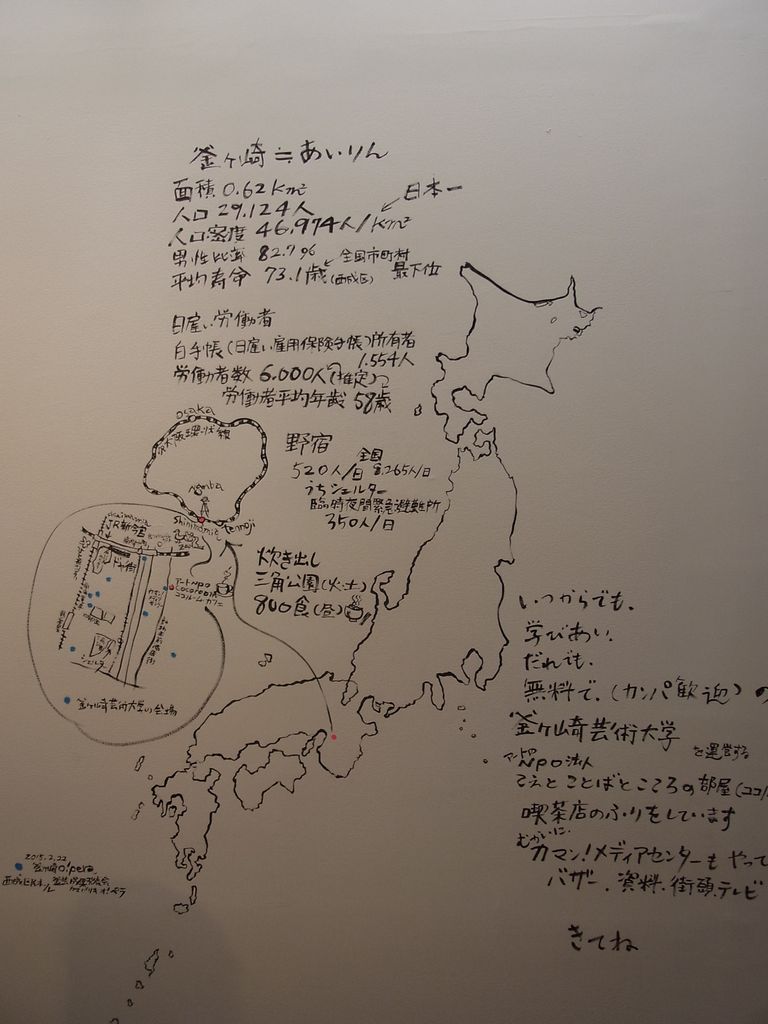 釜ヶ崎≒あいりん
面積 0.62 Km²
人口 29.124人
日本一
人口密度 46,974人/Km²
男性比率 82.7%
平均寿命 73.1歳(西成区)
全国市町村
最下位
日雇い労働者
白手帳(日雇い雇用保険手帳)所有者
1.554人
労働者数 6.000人(推定)
労働者平均年齢 58歳
osaka
JR大阪環状線
Namba
Shinimamiya
Tennoji
野宿
全国
520人/日 8.265人/日
うちシェルター
臨時夜間緊急避難所
350人/日
炊き出し
三角公園(火・土)
800食(昼)
JR新今宮
ドヤ街
アートNPO
cocoroom
ココルームカフェ
シェルター
釜ヶ崎芸術大学の会場
いつからでも、
学びあい、
だれでも、
無料で、(カンパ歓迎)の
釜ヶ崎芸術大学
を運営する
NPO法人
こえとことばとこころの部屋(ココル
喫茶店のふりをしています
むかいに
カマン!メディアセンターもやって
バザー、資料、街頭テレビ
きてね
2015.2.22
釜ヶ崎O!pera